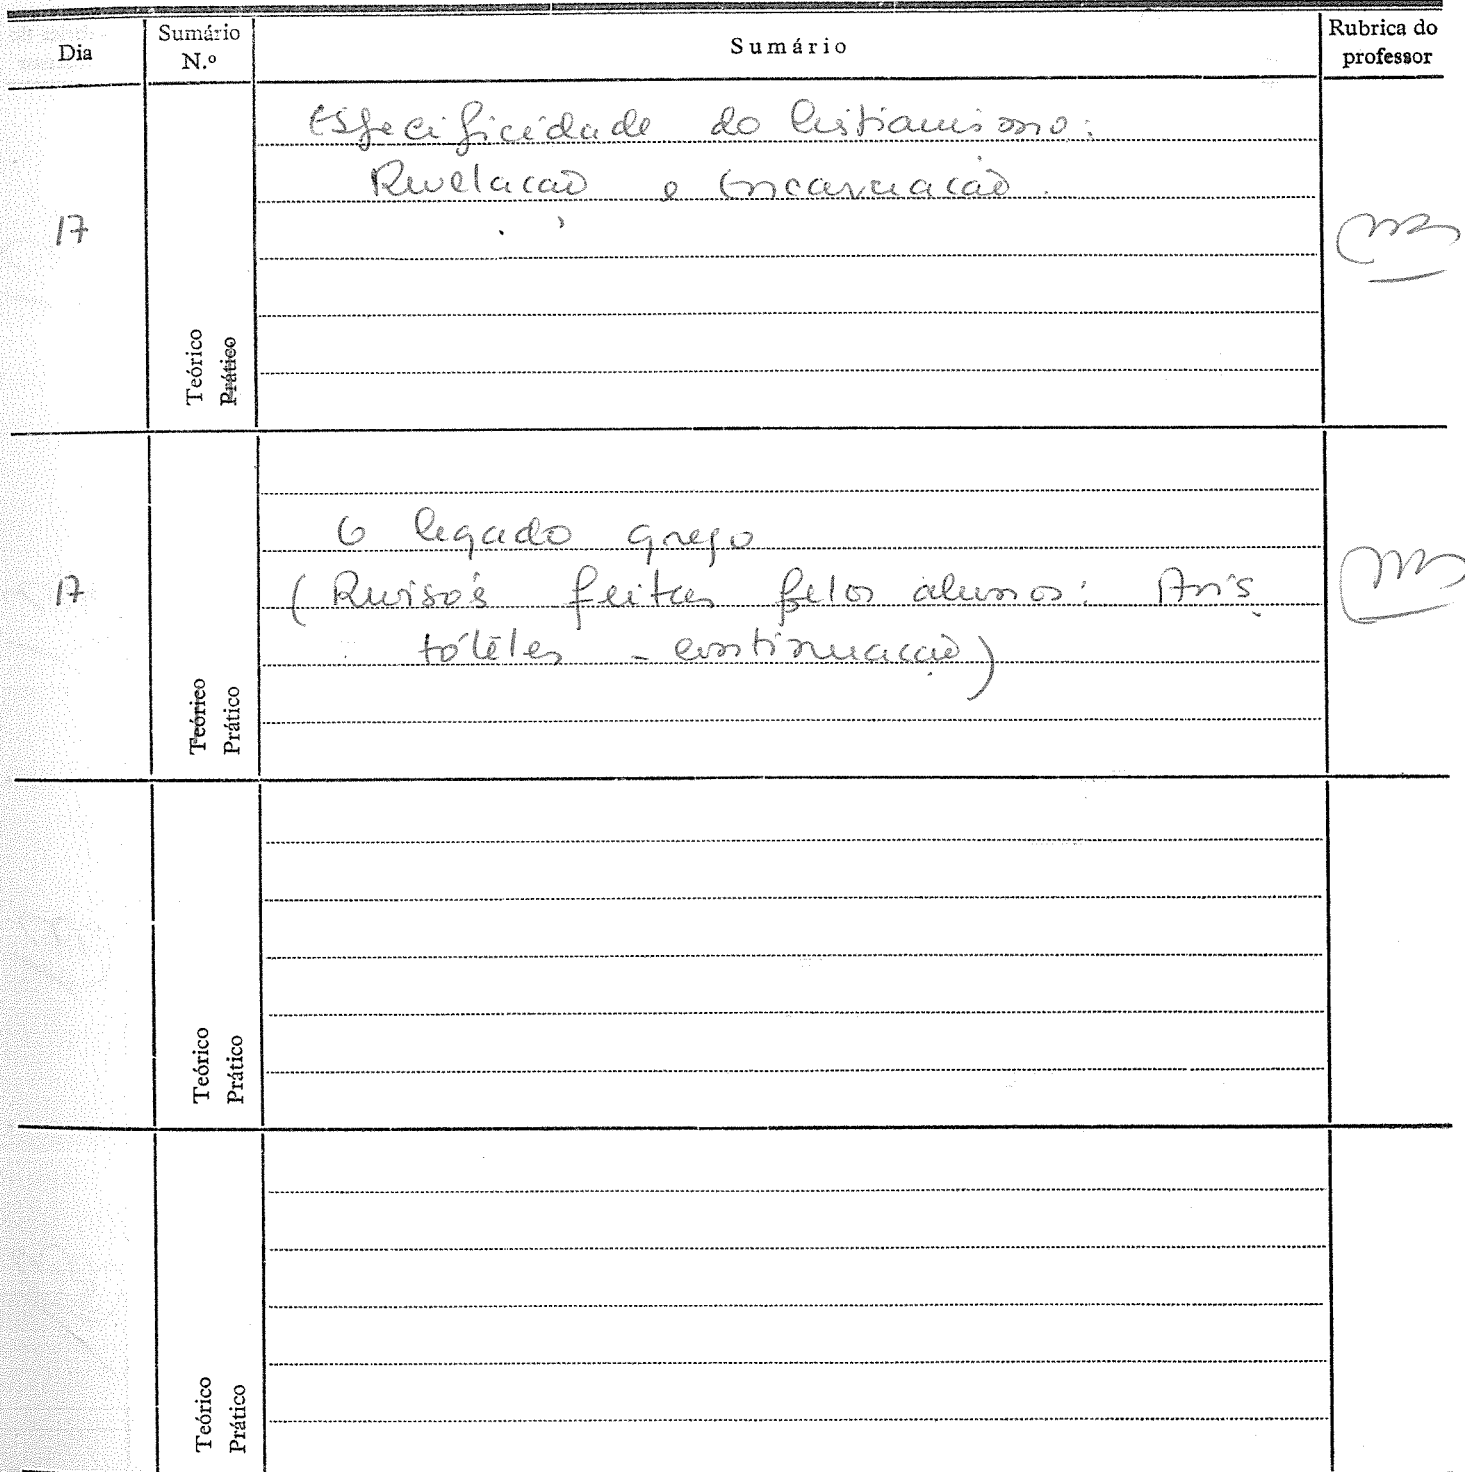 Dia
Sumário N.º
Sumário
Rubrica do professor
17
Teórico
Prático
Especificidade do Cristianismo:
Revelação e Encarnação.
17
Teórico
Prático
O legado grego
(Revisões feitas pelos alunos: Aris-
tóteles - continuação)
Teórico
Prático
Teórico
Prático